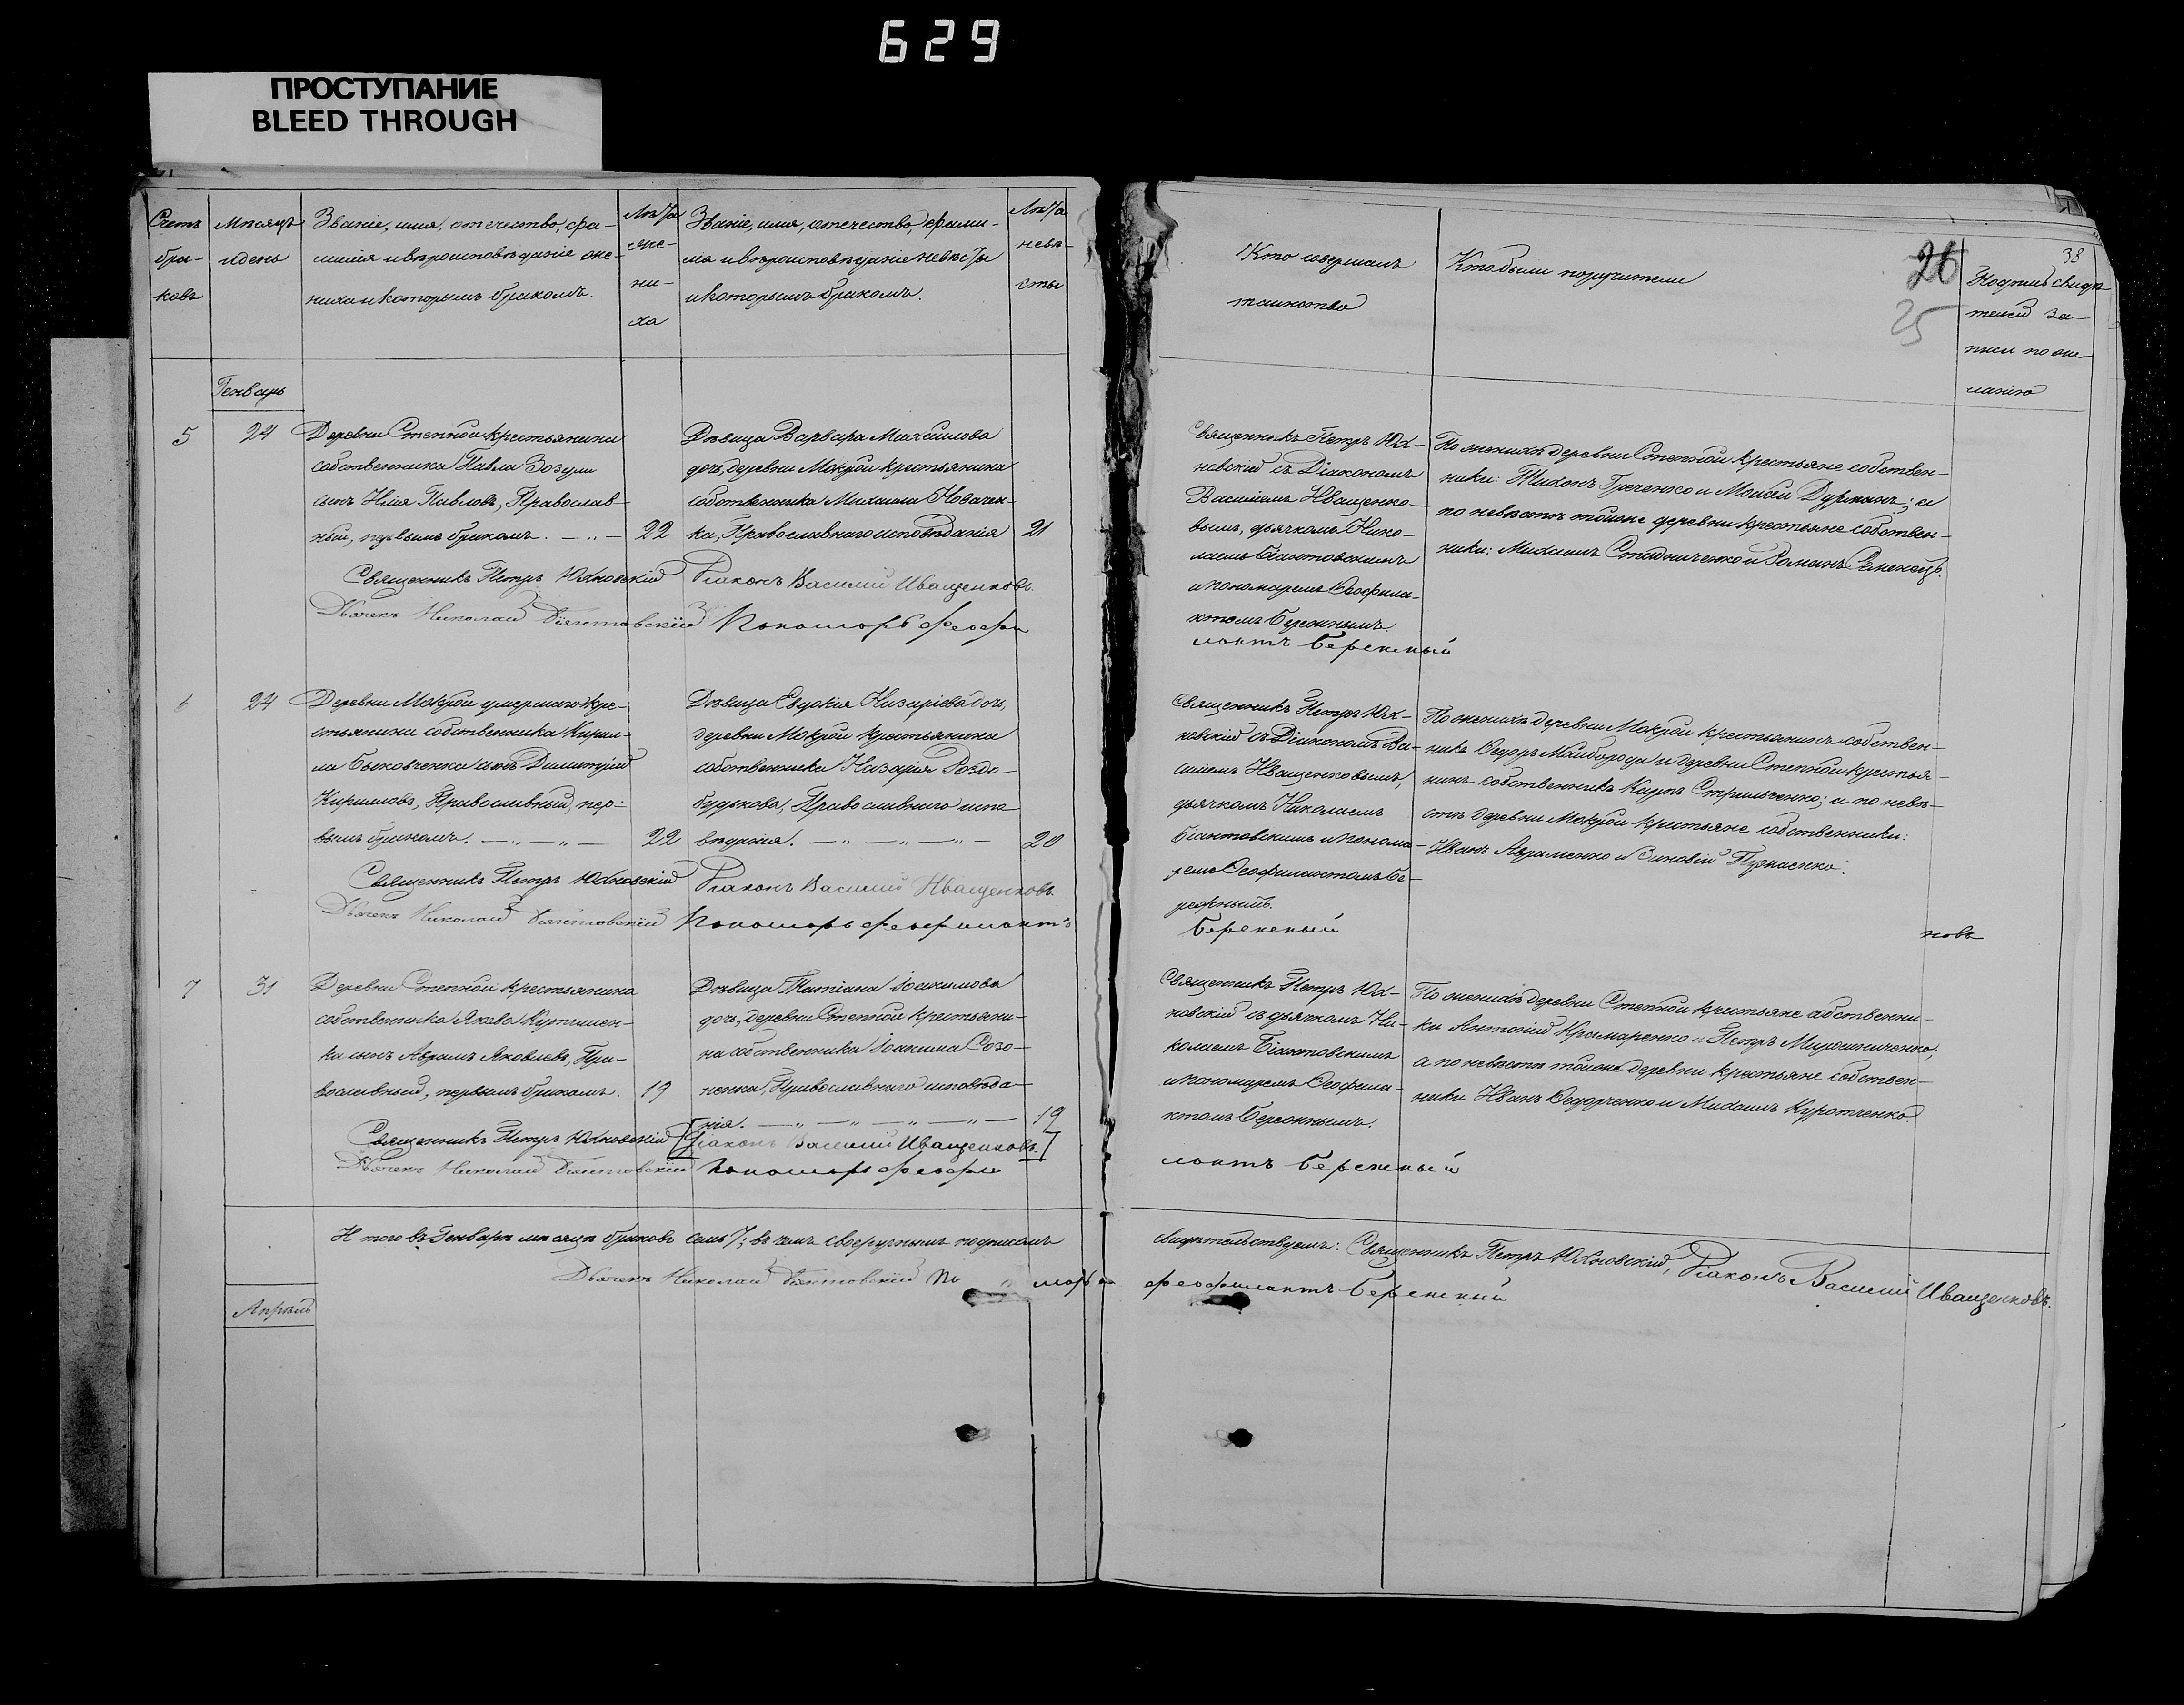 629
ПРОСТУПАНИЕ
BLEED THROUGH
Счетъ
бра-
ковъ
Мѣсяцъ
и день
Званіе, имя, отечество, фа-
милія и вѣроисповѣданіе же-
ниха и которымъ бракомъ.
Лѣта
же-
ни-
ха
Званіе, имя, отечество, фами-
лія и вѣроисповѣданіе невѣсты
и которымъ бракомъ.
Лѣта
невѣ-
сты
Кто совершалъ
таинство
Кто были поручители
26
25
38
Подпись свидѣ-
телей за-
писи по же-
ланію
Генварь
5
24
Деревни Степной крестьянина
собственника Павла Зозули
сынъ Илія Павловъ, Православ-
ный, первымъ бракомъ. — „ —
22
Дѣвица Варвара Михаилова
дочь, деревни Мокрой крестьянина
собственника Михаила Новачен-
ка, Православнаго исповѣданія
21
Священникъ Петръ Юх-
новскій съ Діакономъ
Василіемъ Иващенко-
вымъ, дьячкомъ Нико-
лаемъ Біантовскимъ
и пономаремъ Ѳеофила-
ктомъ Бережнымъ.
По женихѣ деревни Степной крестьяне собствен-
ники: Тихонъ Греченко и Моисей Дурманъ; а
по невѣстѣ тойже деревни крестьяне собствен-
ники: Михаилъ Стадниченко и Романъ
Священникъ Петръ Юхновскій Діаконъ Василий Иващенковъ.
Дьячекъ Николай Біянтовскій Пономорь феофи
лактъ Бережный
6
24
Деревни Мокрой умершаго кре-
стьянина собственника Кирил-
ла Быковченка сынъ Димитрій
Кирилловъ, Православный, пер-
вымъ бракомъ. — „ — „ —
22
Дѣвица Евдокія Назаріева дочь,
деревни Мокрой крестьянина
собственника Назарія Роздо-
будькова, Православнаго испо
вѣданія. — „ — „ — „ —
20
Священникъ Петръ Юх-
новскій съ Діакономъ Ва-
силіемъ Иващенковымъ,
дьячкомъ Николаемъ
Біантовскимъ и понома-
ремъ Ѳеофилактомъ Бе-
режнымъ.
По женихѣ деревни Мокрой крестьянинъ собствен-
никъ Ѳедоръ Майборода и деревни Степной крестья-
нинъ собственникъ Карпъ Стрильченко; а по невѣ-
стѣ деревни Мокрой крестьяне собственники:
Иванъ Авраменко и Зиновій
Священникъ Петръ Юхновскій Діаконъ Василий Иващенковъ.
Дьячекъ Николай Біянтовскій Пономорь феофилактъ
Бережный
новъ
7
31
Деревни Степной крестьянина
собственника Якова
ка сынъ Аврамъ Яковлевъ, Пра-
вославный, первымъ бракомъ.
19
Дѣвица Татіана Іоакимова
дочь, деревни Степной крестьяни-
на собственника Іоакима Созо-
ненка, Православнаго исповѣда-
нія. — „ — „ — „ — „ —
19
Священникъ Петръ Юх-
новскій съ дьячкомъ Ни-
колаемъ Біантовскимъ
и пономаремъ Ѳеофила-
ктомъ Бережнымъ.
По женихѣ деревни Степной крестьяне собственни-
ки Антоній Крамаренко и Петръ Мирошниченко;
а по невѣстѣ тойже деревни крестьяне собствен-
ники Иванъ Ѳедорченко и Михаилъ
Священникъ Петръ Юхновскій [Діаконъ Василий Иващенковъ.]
Дьячекъ Николай Біянтовскій Пономорь феофи
лактъ Бережный
Итого въ Генварѣ мѣсяцѣ браковъ семь 7; въ чемъ своеручнымъ подписомъ
свидѣтельствуемъ: Священникъ Петръ Юхновскій, Діаконъ Василий Иващенковъ.
Дьячекъ Николай Біянтовскій По морь феофилактъ Бережный
Апрѣль